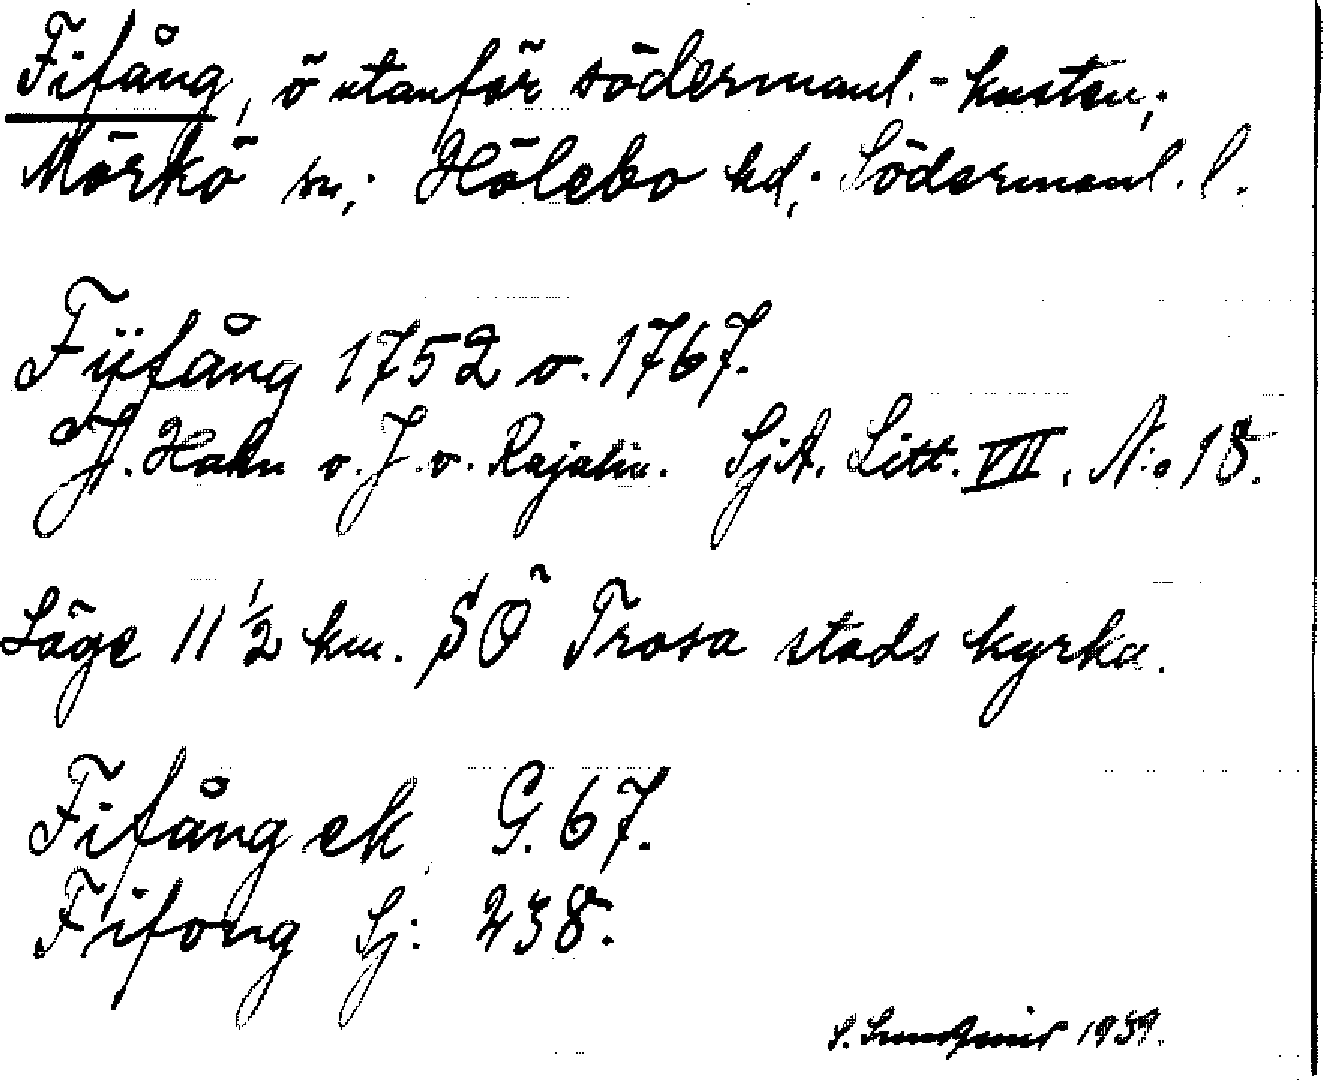 Fifång, ö utanför södermanl.-kusten;
Mörkö sn; Hölebo hd; Södermanl. l.
Fiifång 1752 o. 1767.
J. Hahn o. J. v. Rajalin. SjA. Litt. VII. N:o 18.
Läge 11 1/2 km. SÖ Trosa stads kyrka.
Fifång ek G. 67.
Fifong Sj: 238.
S. 1939.